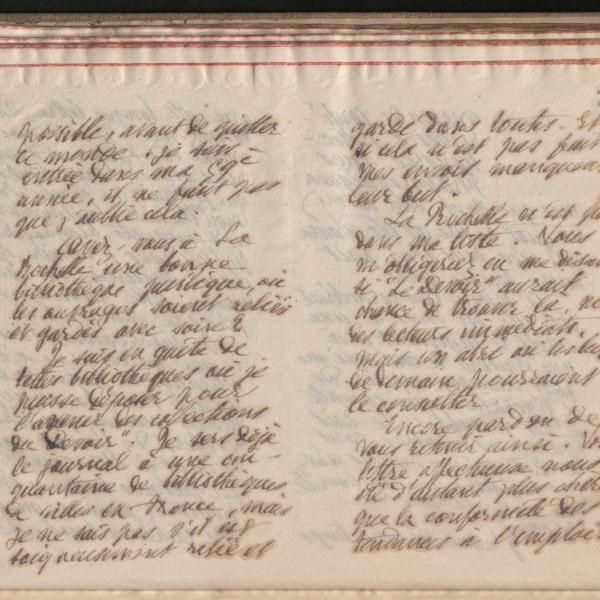 possible, avant de quitter
ce monde. Je suis
entrée dans ma 69e
année, il ne faut pas
que j'oublie cela.
Avez-vous à La
Rochelle une bonne
bibliothèque publique, où
les ouvrages soient reliés
et gardés avec soin ?
Je suis en quête de
telles bibliothèques où je
puisse déposer pour
l'avenir des collections
du "Devoir". Je sers déjà
le journal à une cin-
quantaine de bibliothèques
de villes en France, mais
je ne sais pas s'il est
soigneusement relié et
gardé dans toutes. Et
si cela n'est pas fait
mes envois manquera
leur but.
La Rochelle n'est pa
dans ma liste. Vous
m'obligeriez en me disan
si "Le Devoir" aurait
chance de trouver là, no
des lecteurs immédiats,
mais un abri où les lec
de demain pourraient
le consulter.
Encore pardon de
vous retenir ainsi. Vo
lettre affectueuse nous
été d'autant plus chère
que la conformité des
tendances à l'emploi